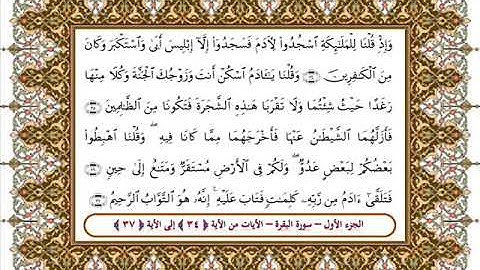 وَإِذْ قُلْنَا لِلْمَلَٰٓئِكَةِ ٱسْجُدُوا۟ لِءَادَمَ فَسَجَدُوٓا۟ إِلَّآ إِبْلِيسَ أَبَىٰ وَٱسْتَكْبَرَ وَكَانَ
مِنَ ٱلْكَٰفِرِينَ ﴿٣٤﴾ وَقُلْنَا يَٰٓـَٔادَمُ ٱسْكُنْ أَنتَ وَزَوْجُكَ ٱلْجَنَّةَ وَكُلَا مِنْهَا
رَغَدًا حَيْثُ شِئْتُمَا وَلَا تَقْرَبَا هَٰذِهِ ٱلشَّجَرَةَ فَتَكُونَا مِنَ ٱلظَّٰلِمِينَ ﴿٣٥﴾
فَأَزَلَّهُمَا ٱلشَّيْطَٰنُ عَنْهَا فَأَخْرَجَهُمَا مِمَّا كَانَا فِيهِ ۖ وَقُلْنَا ٱهْبِطُوا۟
بَعْضُكُمْ لِبَعْضٍ عَدُوٌّ ۖ وَلَكُمْ فِى ٱلْأَرْضِ مُسْتَقَرٌّ وَمَتَٰعٌ إِلَىٰ حِينٍ ﴿٣٦﴾
فَتَلَقَّىٰٓ ءَادَمُ مِن رَّبِّهِۦ كَلِمَٰتٍ فَتَابَ عَلَيْهِ ۚ إِنَّهُۥ هُوَ ٱلتَّوَّابُ ٱلرَّحِيمُ ﴿٣٧﴾
الجزء الأول – سورة البقرة – الآيات من الآية ﴿ ٣٤ ﴾ إلى الآية ﴿ ٣٧ ﴾